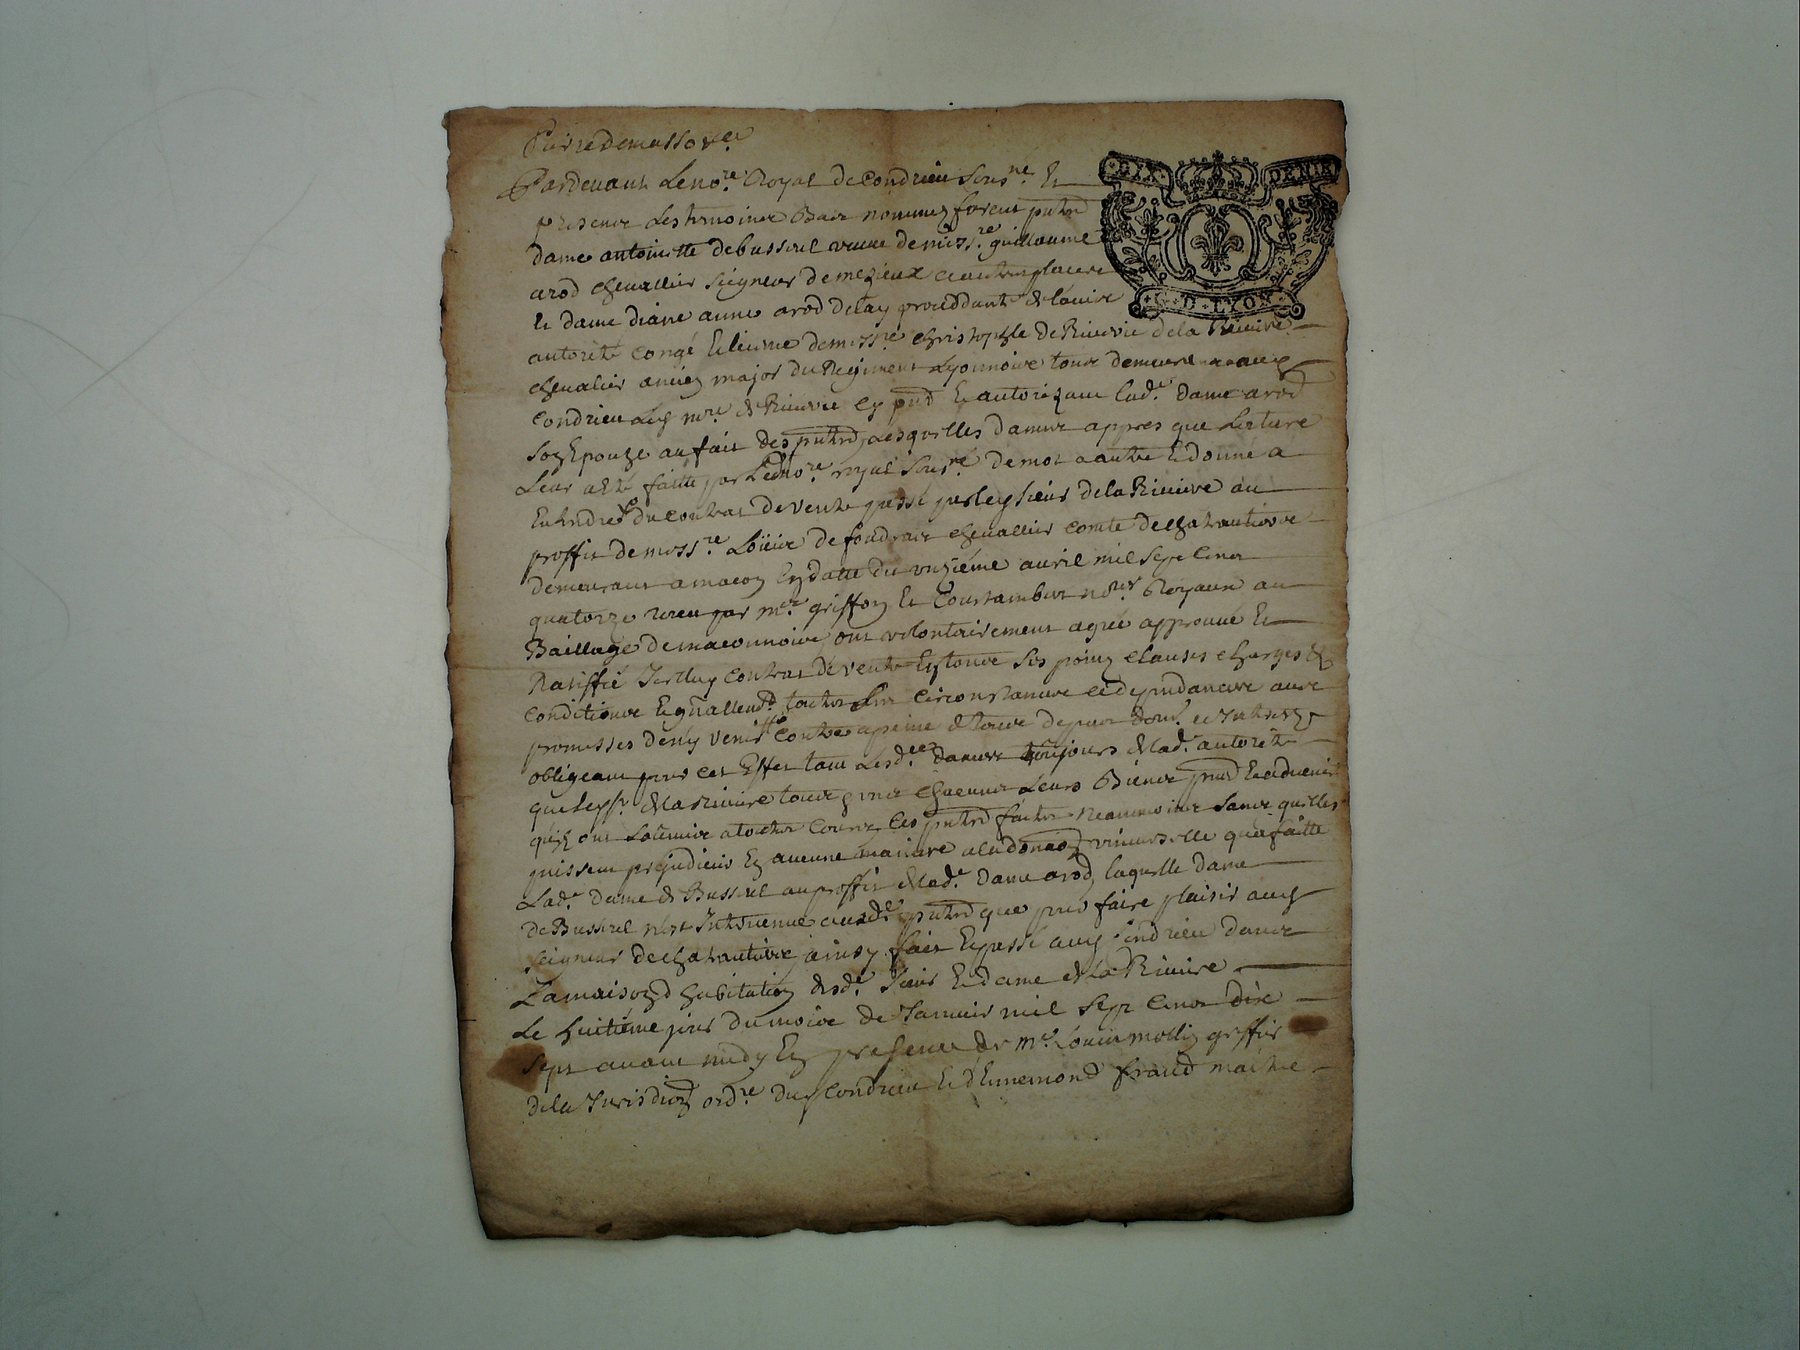 Pardevant Le no.re Royal de Condrieu Sous.né Et
presence Les temoins Bas nommez furent
dame antoinette debusseul veuve de miss.re guillaume
arod chevallier Seigneur de mezieux et autres places
et dame diane anne arod delay proceddante de
autorité congé et licence de miss.re christophle de Riverie de la Riviere
chevalier ancien major du Regiment Lyonnois tous demeurant aux
Condrieu Led. de Riverie et autorizant lad.e dame arod
Son Epouze au fait des Lesquelles dames appres que Lecture
Leur a Eté faitte par Led no.re royal Sous.né de mot a autre et donné a
Entendre du contrat de vente passé par led sieur de la Riviere au
proffit de miss.re Loüis de foudras chevallier comte de chatautiers
demeurant a macon En datte du unzieme avril mil sept cent
quatorze receu par m.re griffon et no.res Royaux au
Baillage de maconnois ont volontairement agréé approuvé Et
Ratiffié Icelluy contrat de vente En tous Ses points clauses charges &
conditions circonstances et dependances avec
promesses de ny venir contre a peine de tous depens
obligeant pour cet Effet tant Lesd. dames toujours de lad.e autorité
que led Sr. de la Riviere tous chacuns Leurs Biens
quils ont Soumis a toutes Cours faites neanmoins Sans quelles
puissent prejudicier En aucune maniere a la universelle que faitte
Lad.e dame de Busseul au proffit de lad.e dame arod laquelle dame
de Busseul n'est Intervenue que pour faire plaisir aud
seigneur de chatautiers ainsy fait Et passé aud Condrieu dans
La maison d habitation desd. Sieur et dame de la Riviere
Le huitieme jour du mois de Janvier mil Sept Cent dix
Sept avant midy En presence de m.e Louis mollin greffier
de la Jurisdion ord.re dud Condrieu et d'Ennemond fraud maitre
DIX DENIE
G. D. LYON